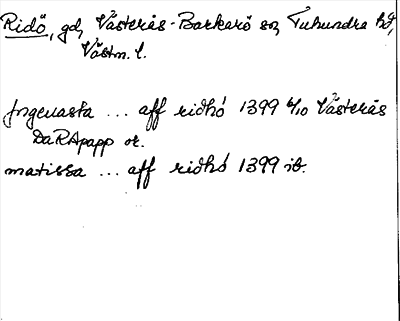 Ridö, gd, Västerås-Barkarö sn, Tuhundra hd,
Västm. l.
Jngeuasta ... aff ridhó 1399 6/10 Västerås
DaRApapp or.
matissa ... aff ridhó 1399 ib.